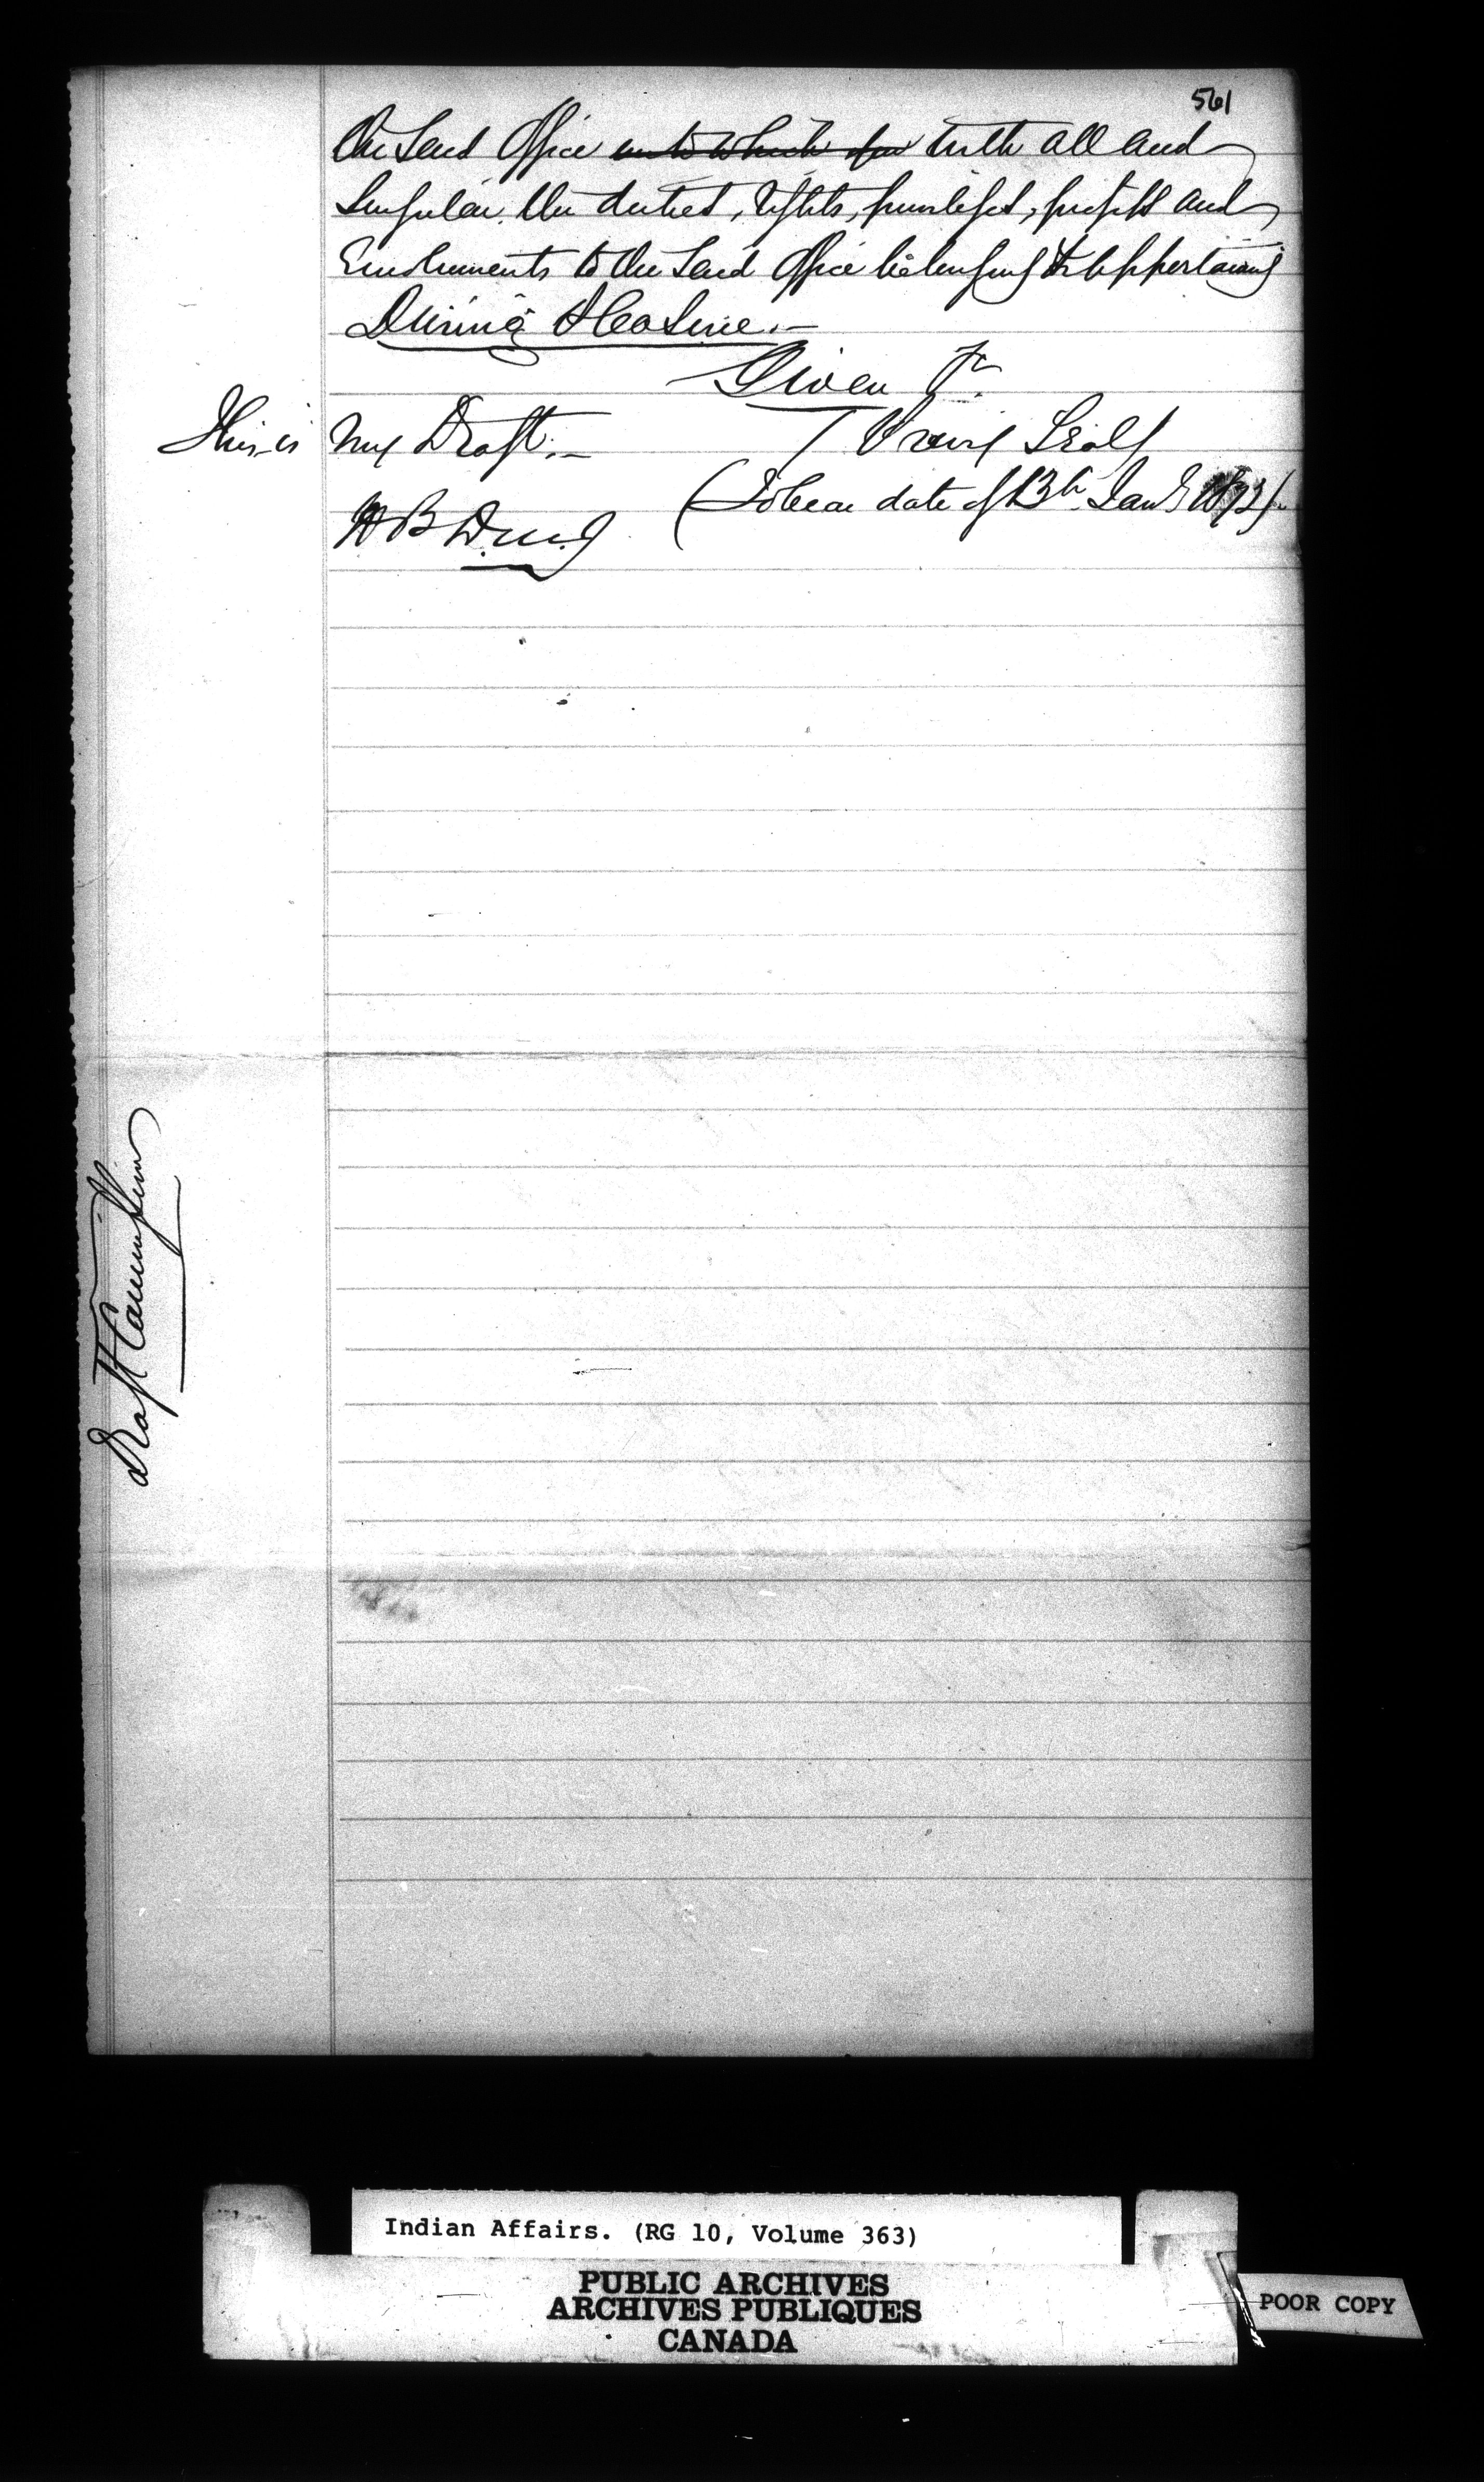 561
the Said Office unto which for with all and
Singular the duties, rights, privileges, profits and
Emoluments to the Said Office belonging & appertaining
During Pleasure.—
Given &c
This is My Draft.— Privy Seal
(To bear date of 13th Jany
H B
Draft Commission
Indian Affairs. (RG 10, Volume 363)
PUBLIC ARCHIVES
ARCHIVES PUBLIQUES
CANADA
POOR COPY